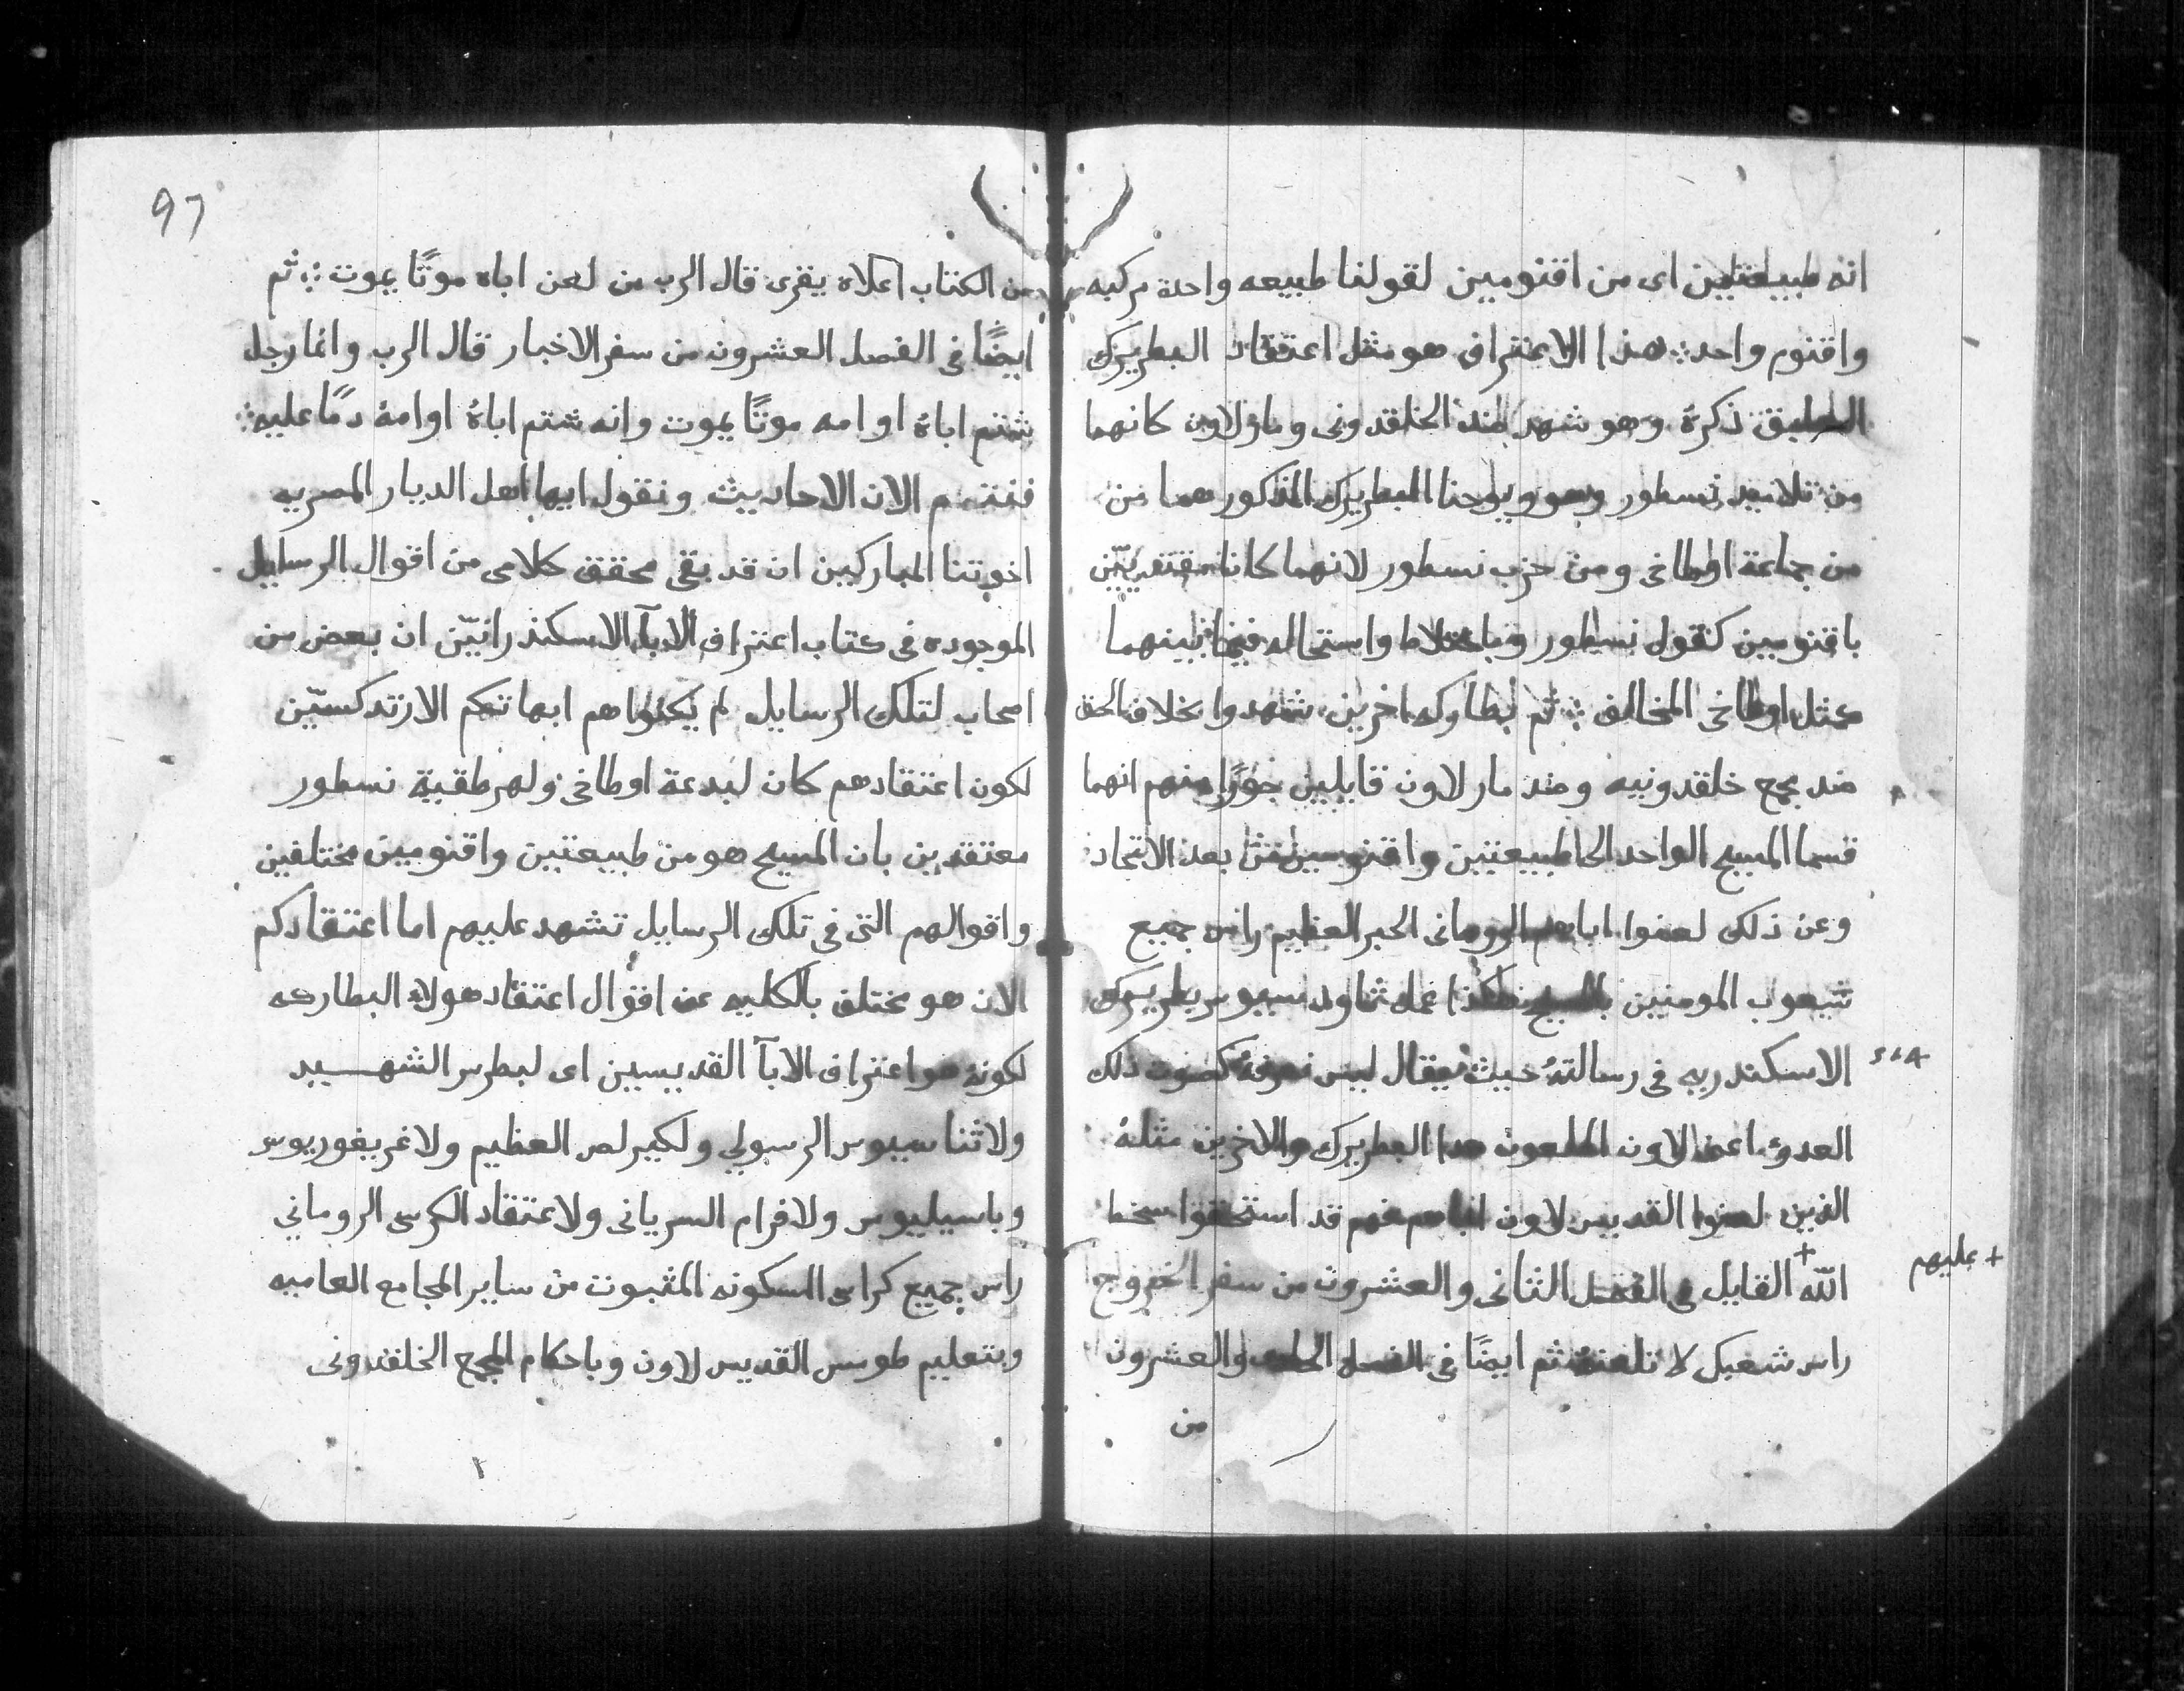 انه طبيعتين اى من اقنومين لقولنا طبيعه واحدة مركبه
واقنوم واحد ؛ هذا الاعتراف هو مثل اعتقاد البطريرك
السابق ذكرهٔ وهو شهد ضد الخلقدونى ومار لاون كانهما
من تلاميد نسطور وهو ويوحنا البطريرك المذكور هما من
من جماعة اوطاخى ومن حزب نسطور لانهما كانا معتقديّن
باقنومين كقول نسطور وباختلاط واستحاله فيما بينهما
كمثل اوطاخى المخالف ؛ ثم بطاركه اخرين شهدوا بخلاف الحق
ضد مجمع خلقدونيه وضد مار لاون قايلين جورًا منهم انهما
قسما المسيح الواحد الى طبيعتين واقنومين بعد الاتحاد
وعن ذلك لعنوا اباهم الرومانى الحبر العظيم راس جميع
شعوب المومنين بالمسيح هكذا عمل تاودسيوس بطريرك
الاسكندريه فى رسالتهُ حيث يقال ليس نعرفهُ كصوت ذلك
العدو اعنى لاون الملعون هدا البطريرك والاخرين مثلهُ
الذين لعنوا القديس لاون اباهم فهم قد استحقوا سخط
الله + القايل فى الفصل الثانى والعشرون من سفر الخروج
+ عليهم
راس شعبك لا تلعنهُ ثم ايضًا فى الفصل الحادى والعشرون
من
97
من الكتاب اعلاه يقرى قال الرب من لعن اباه موتًا يموت ؛ ثم
ايضًا فى الفصل العشرون من سفر الاخبار قال الرب وانما رجل
شتم اباهٔ او امه موتًا يموت وانه شتم اباهُ او امهُ دمًا عليه ؛
فنختم الان الاحاديث ونقول ايها اهل الديار المصريه
اخوتنا المباركين ان قد بقى محقق كلامى من اقوال الرسايل
الموجوده فى كتاب اعتراف الابآ الاسكندرانيّن ان بعض من
اصحاب لتلك الرسايل لم يكنوا هم ابهاتكم الارتدكسيّن
لكون اعتقادهم كان لبدعة اوطاخى ولهرطقية نسطور
معتقدين بان المسيح هو من طبيعتين واقنومين مختلفين
واقوالهم التى فى تلك الرسايل تشهد عليهم اما اعتقادكم
الان هو مختلف بالكليه عن اقوال اعتقاد هولاء البطاركه
لكونهُ هو اعتراف الابآ القديسين اى لبطرس الشهيد
ولاثناسيوس الرسولي ولكيرلص العظيم ولاغريغوريوس
وباسيليوس ولافرام السريانى ولاعتقاد الكرسى الرومانى
راس جميع كراسى المسكونه المثبوت من ساير المجامع العاميه
وبتعليم طومس القديس لاون وباحكام المجمع الخلقدونى